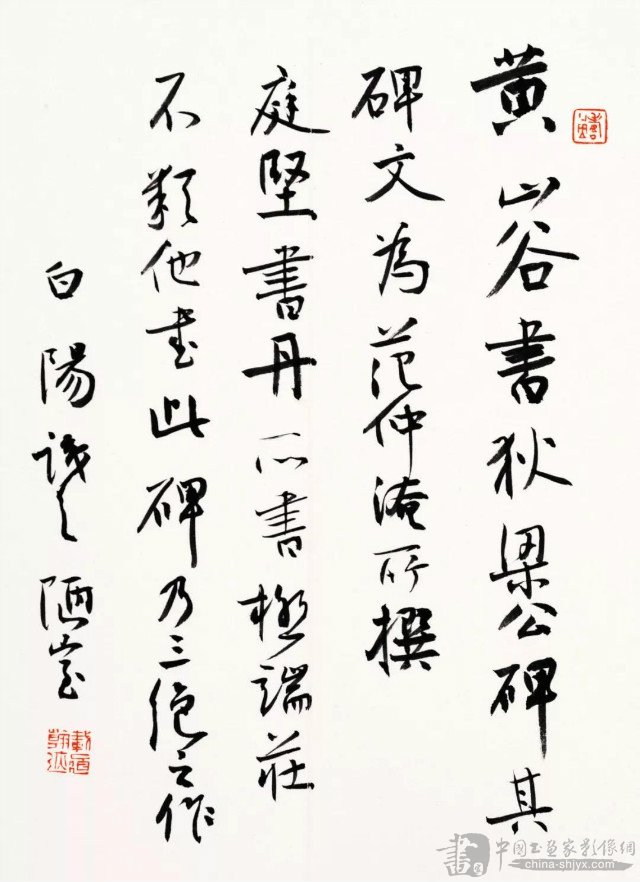 黄山谷書狄梁公碑其
碑文為范仲淹所撰
庭堅書丹所書極端莊
不類他書此碑乃三絕之作
白陽識之陋室
載道
中國書畫家影像網
china-shjyx.com